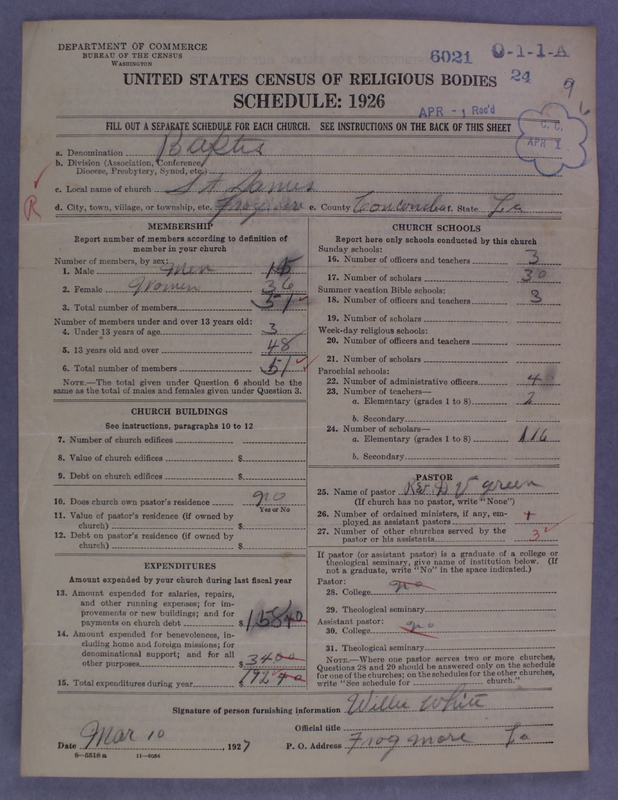 DEPARTMENT OF COMMERCE
BUREAU OF THE CENSUS
WASHINGTON
6021 0-1-1-A
24
UNITED STATES CENSUS OF RELIGIOUS BODIES
SCHEDULE: 1926
APR - 1 Rec'd
FILL OUT A SEPARATE SCHEDULE FOR EACH CHURCH. SEE INSTRUCTIONS ON THE BACK OF THIS SHEET
C. C.
APR 1
a. Denomination Baptis
b. Division (Association, Conference,
Diocese, Presbytery, Synod, etc.)
c. Local name of church St James
R
d. City, town, village, or township, etc. Frogmore e. County Concordia f. State La
MEMBERSHIP
Report number of members according to definition of
member in your church
Number of members, by sex:
1. Male Men 15
2. Female Women 36
3. Total number of members 51
Number of members under and over 13 years old:
4. Under 13 years of age 3
5. 13 years old and over 48
6. Total number of members 51
NOTE.—The total given under Question 6 should be the
same as the total of males and females given under Question 3.
CHURCH BUILDINGS
See instructions, paragraphs 10 to 12
7. Number of church edifices
8. Value of church edifices $
9. Debt on church edifices $
10. Does church own pastor's residence no
Yes or No
11. Value of pastor's residence (if owned by
church) $
12. Debt on pastor's residence (if owned by
church) $
EXPENDITURES
Amount expended by your church during last fiscal year
13. Amount expended for salaries, repairs,
and other running expenses; for im-
provements or new buildings; and for
payments on church debt $ 15840
14. Amount expended for benevolences, in-
cluding home and foreign missions; for
denominational support; and for all
other purposes $ 3400
15. Total expenditures during year $ 19240
CHURCH SCHOOLS
Report here only schools conducted by this church
Sunday schools:
16. Number of officers and teachers 3
17. Number of scholars 30
Summer vacation Bible schools:
18. Number of officers and teachers 3
19. Number of scholars
Week-day religious schools:
20. Number of officers and teachers
21. Number of scholars
Parochial schools:
22. Number of administrative officers 4
23. Number of teachers—
a. Elementary (grades 1 to 8) 2
b. Secondary
24. Number of scholars—
a. Elementary (grades 1 to 8) 116
b. Secondary
PASTOR
25. Name of pastor Rev D V green
(If church has no pastor, write "None")
26. Number of ordained ministers, if any, em-
ployed as assistant pastors
27. Number of other churches served by the
pastor or his assistants 3
If pastor (or assistant pastor) is a graduate of a college or
theological seminary, give name of institution below. (If
not a graduate, write "No" in the space indicated.)
Pastor:
28. College no
29. Theological seminary
Assistant pastor:
30. College no
31. Theological seminary
NOTE.—Where one pastor serves two or more churches,
Questions 28 and 29 should be answered only on the schedule
for one of the churches; on the schedules for the other churches,
write "See schedule for church."
Signature of person furnishing information Willie White
Official title
Date Mar 10, 1927 P. O. Address Frogmore La
8—5518a 11—4084